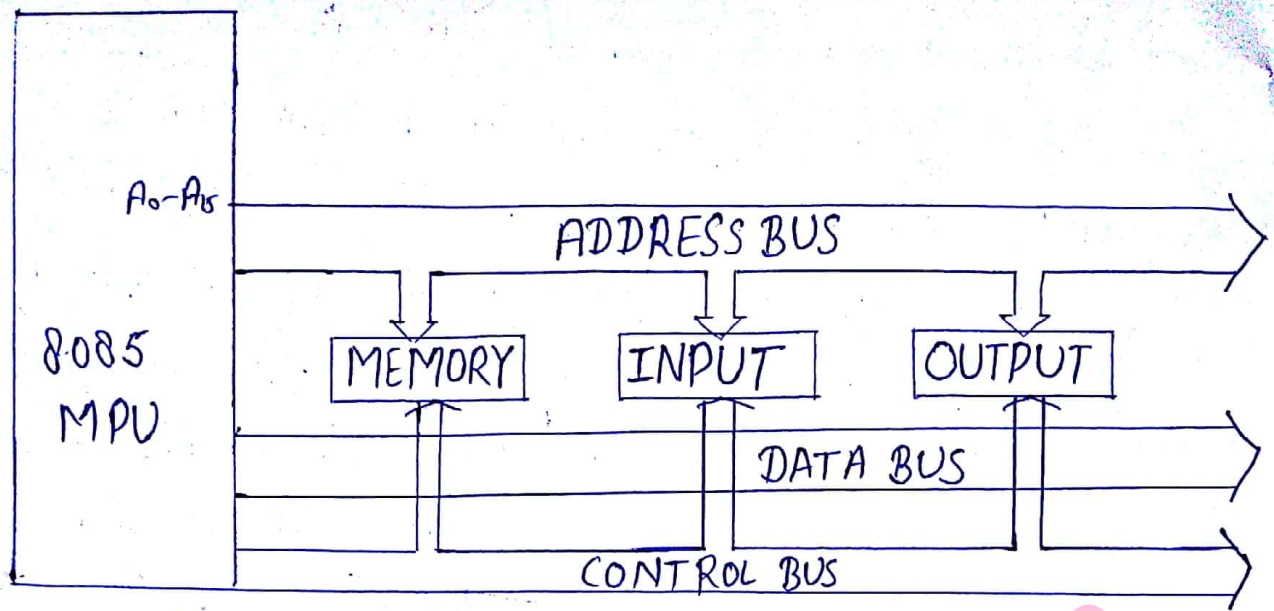 A0-A15
ADDRESS BUS
8085
MPU
MEMORY
INPUT
OUTPUT
DATA BUS
CONTROL BUS